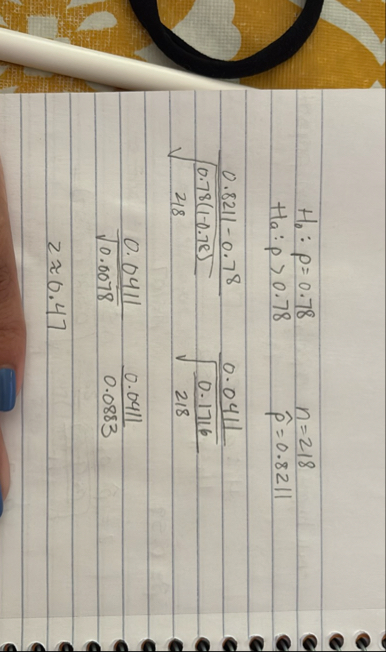 H₀: p = 0.78 n = 218
Hₐ: p > 0.78 p̂ = 0.8211
0.8211 - 0.78 / √(0.78(1-0.78) / 218) 0.0411 / √(0.1716 / 218)
0.0411 / √0.0078 0.0411 / 0.0883
z ≈ 0.47